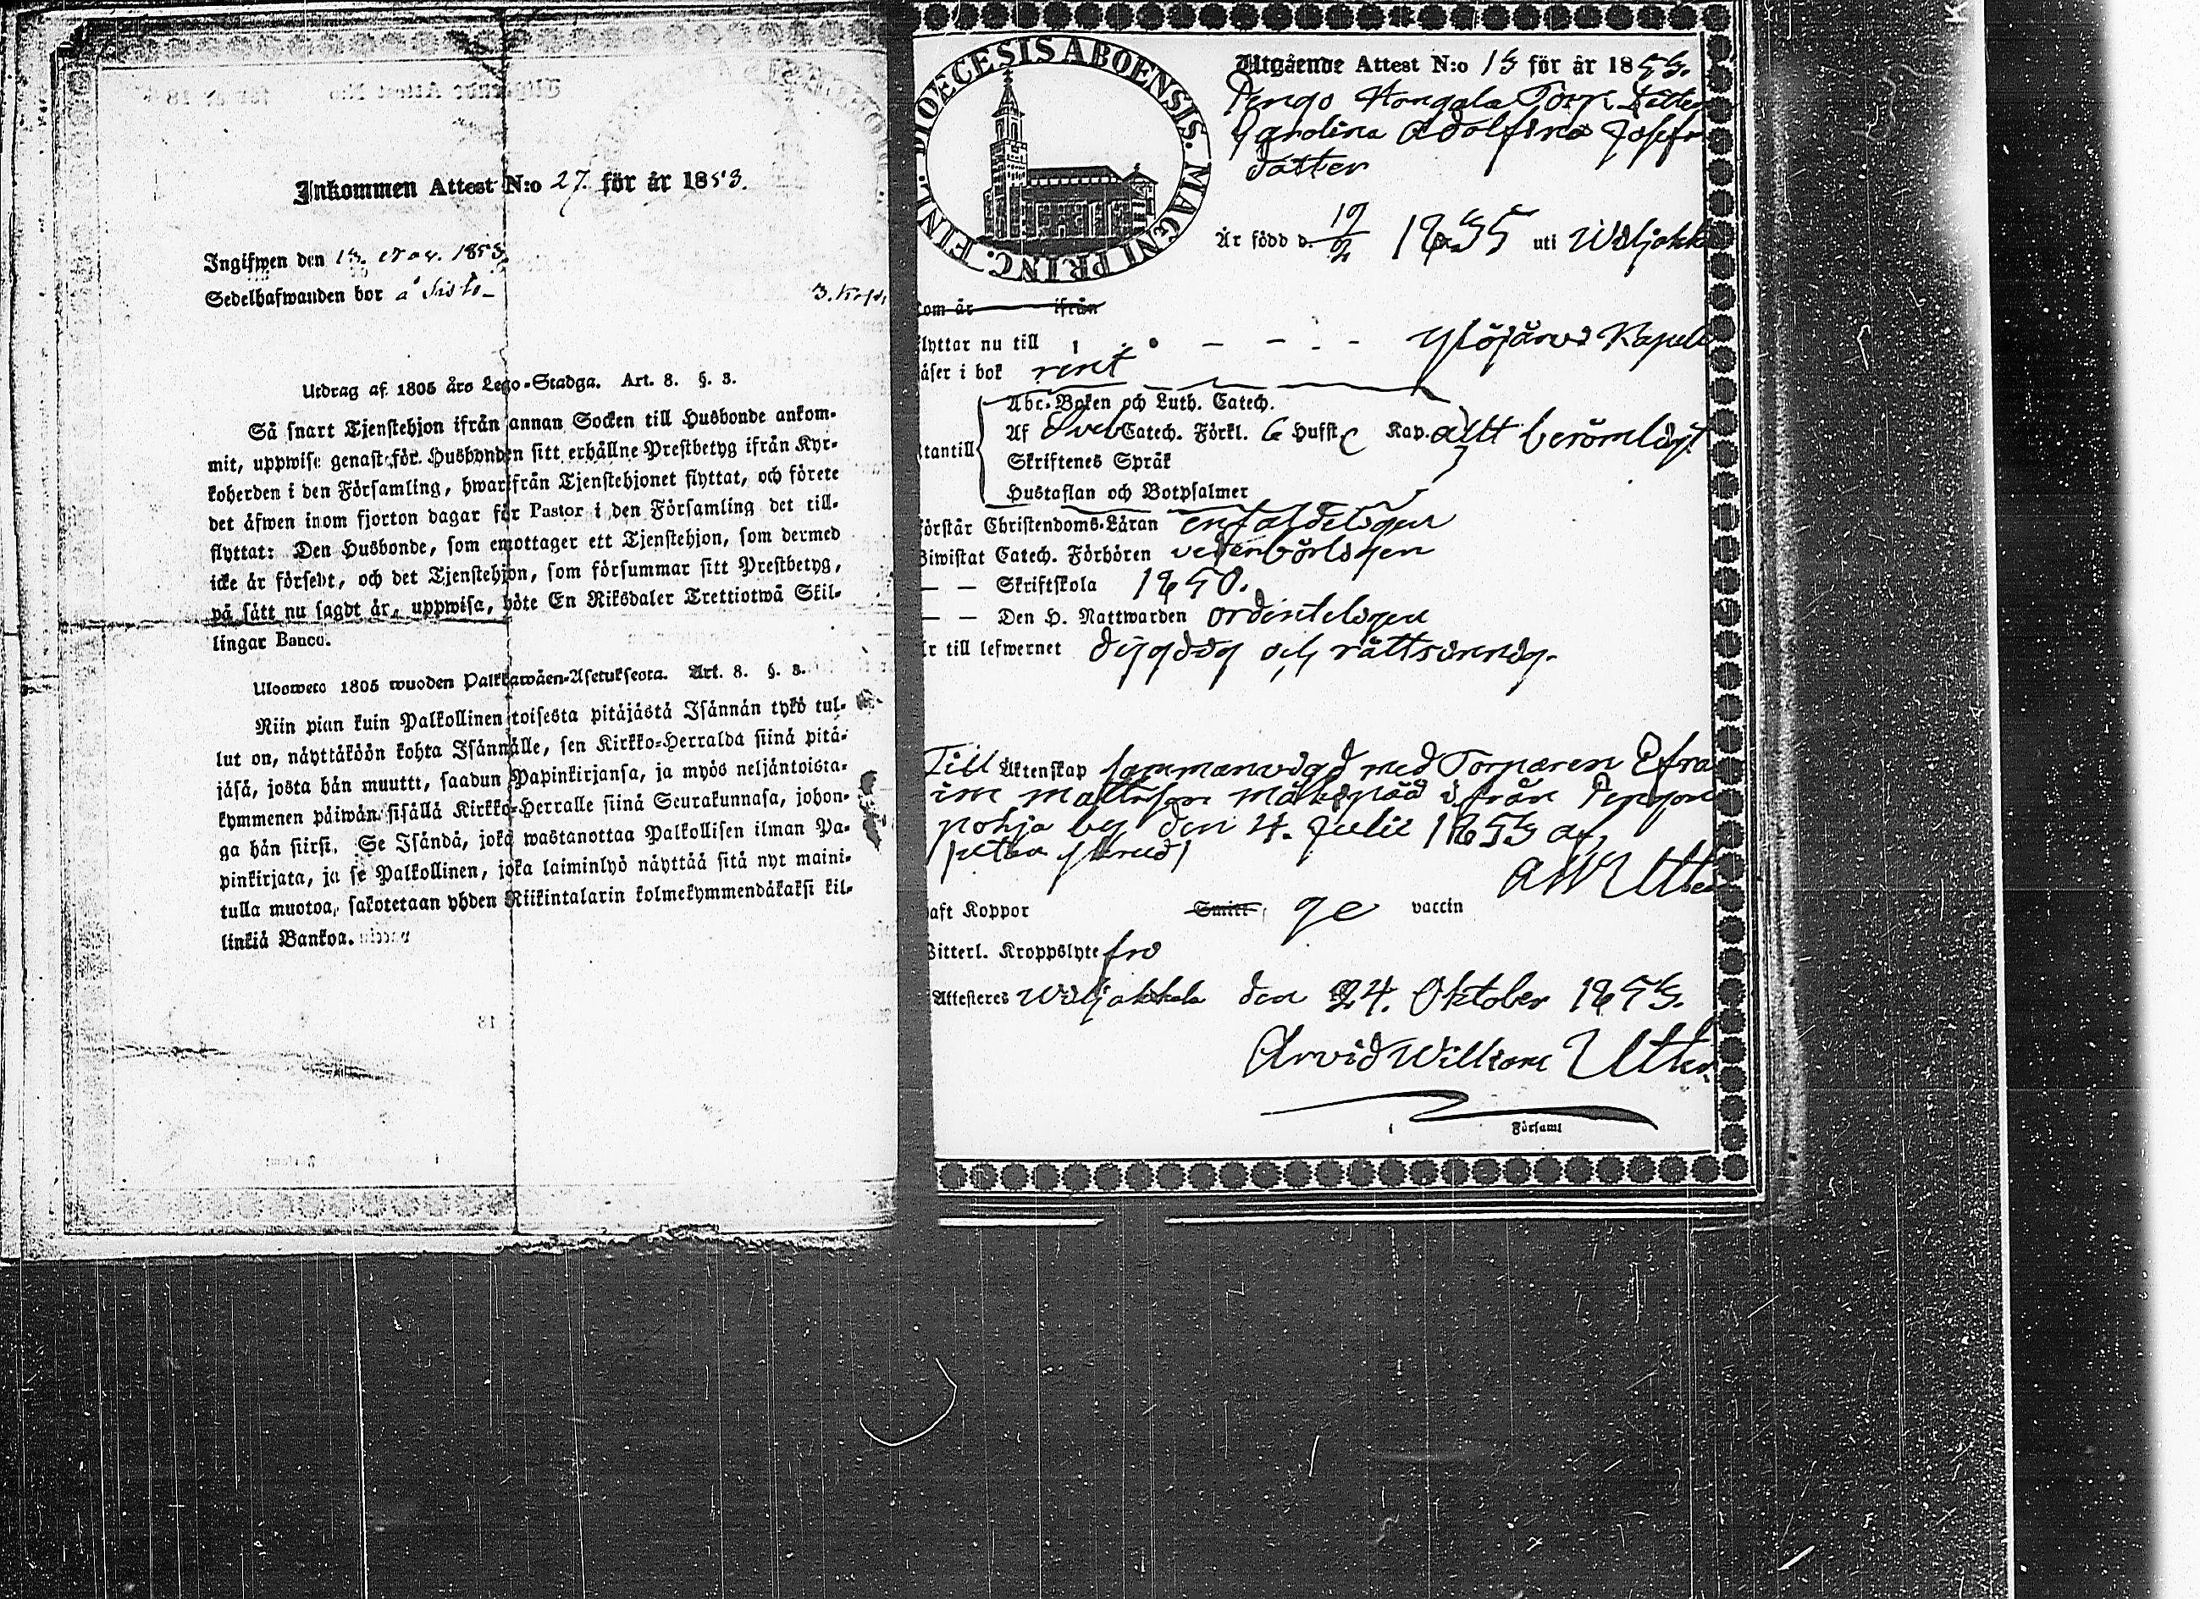 Inkommen Attest N:o 27. för år 1853.
Ingifwen den 13. Nov. 1853.
Sedelhafwanden bor å
Utdrag af 1805 års Lego-Stadga. Art. 8. §. 3.
Så snart Tjenstehjon ifrån annan Socken till Husbonde ankom-
mit, uppwise genast för Husbonden sitt erhållne Prestbetyg ifrån Kyr-
koherden i den Församling, hwarifrån Tjenstehjonet flyttat, och förete
det äfwen inom fjorton dagar för Pastor i den Församling det till-
flyttat: Den Husbonde, som emottager ett Tjenstehjon, som dermed
icke är försedt, och det Tjenstehjon, som försummar sitt Prestbetyg,
på sätt nu sagdt är, uppwisa, böte En Riksdaler Trettiotwå Skil-
lingar Banco.
Ulosweto 1805 wuoden Palkkawäen-Asetuksesta. Art. 8. §. 3.
Niin pian kuin Palkollinen toisesta pitäjästä Isännän tykö tul-
lut on, näyttäköön kohta Isännälle, sen Kirkko-Herralda siinä pitä-
jäsä, josta hän muutti, saadun Papinkirjansa, ja myös neljäntoista-
kymmenen päiwän sisällä Kirkko-Herralle siinä Seurakunnasa, johon-
ga hän siirsi. Se Isändä, joka wastanottaa Palkollisen ilman Pa-
pinkirjata, ja se Palkollinen, joka laiminlyö näyttää sitä nyt maini-
tulla muotoa, sakotetaan yhden Riikintalarin kolmekymmendäkaksi kil-
linkiä Bankoa.
DIOECESIS ABOENSIS. MAGNI PRINC. FINL.
Utgående Attest N:o 13 för år 1853.
Pengo Hongala Torp. Dotter
Carolina Adolfina Josefs
dotter
Är född d. 19/2 1835 uti Wiljakk
Kom år ifrån
flyttar nu till Ylöjärvi Kapell
läser i bok rent
Abc-Boken och Luth. Catech.
Utantill Af Sveb Catech. Förkl. 6 Hufst. Kap. allt berömligt
Skriftenes Språk
Hustaflan och Botpsalmer
Förstår Christendoms-Läran enfaldeligen
Biwistat Catech. Förhören vederbörligen
— — Skriftskola 1850.
— — Den H. Nattwarden ordenteligen
Är till lefwernet dygdig och rättsinnig.
Till Äktenskap sammanvigd med Torparen Efra
im Mattsson ifrån Pengon
pohja by den 4. Julii 1853 af
A W Utter
haft Koppor Smitt, ge vaccin
Witterl. Kroppslyte fri
Attesteres Wiljakkala den 24. Oktober 1853.
Arvid William Utter
i Församl